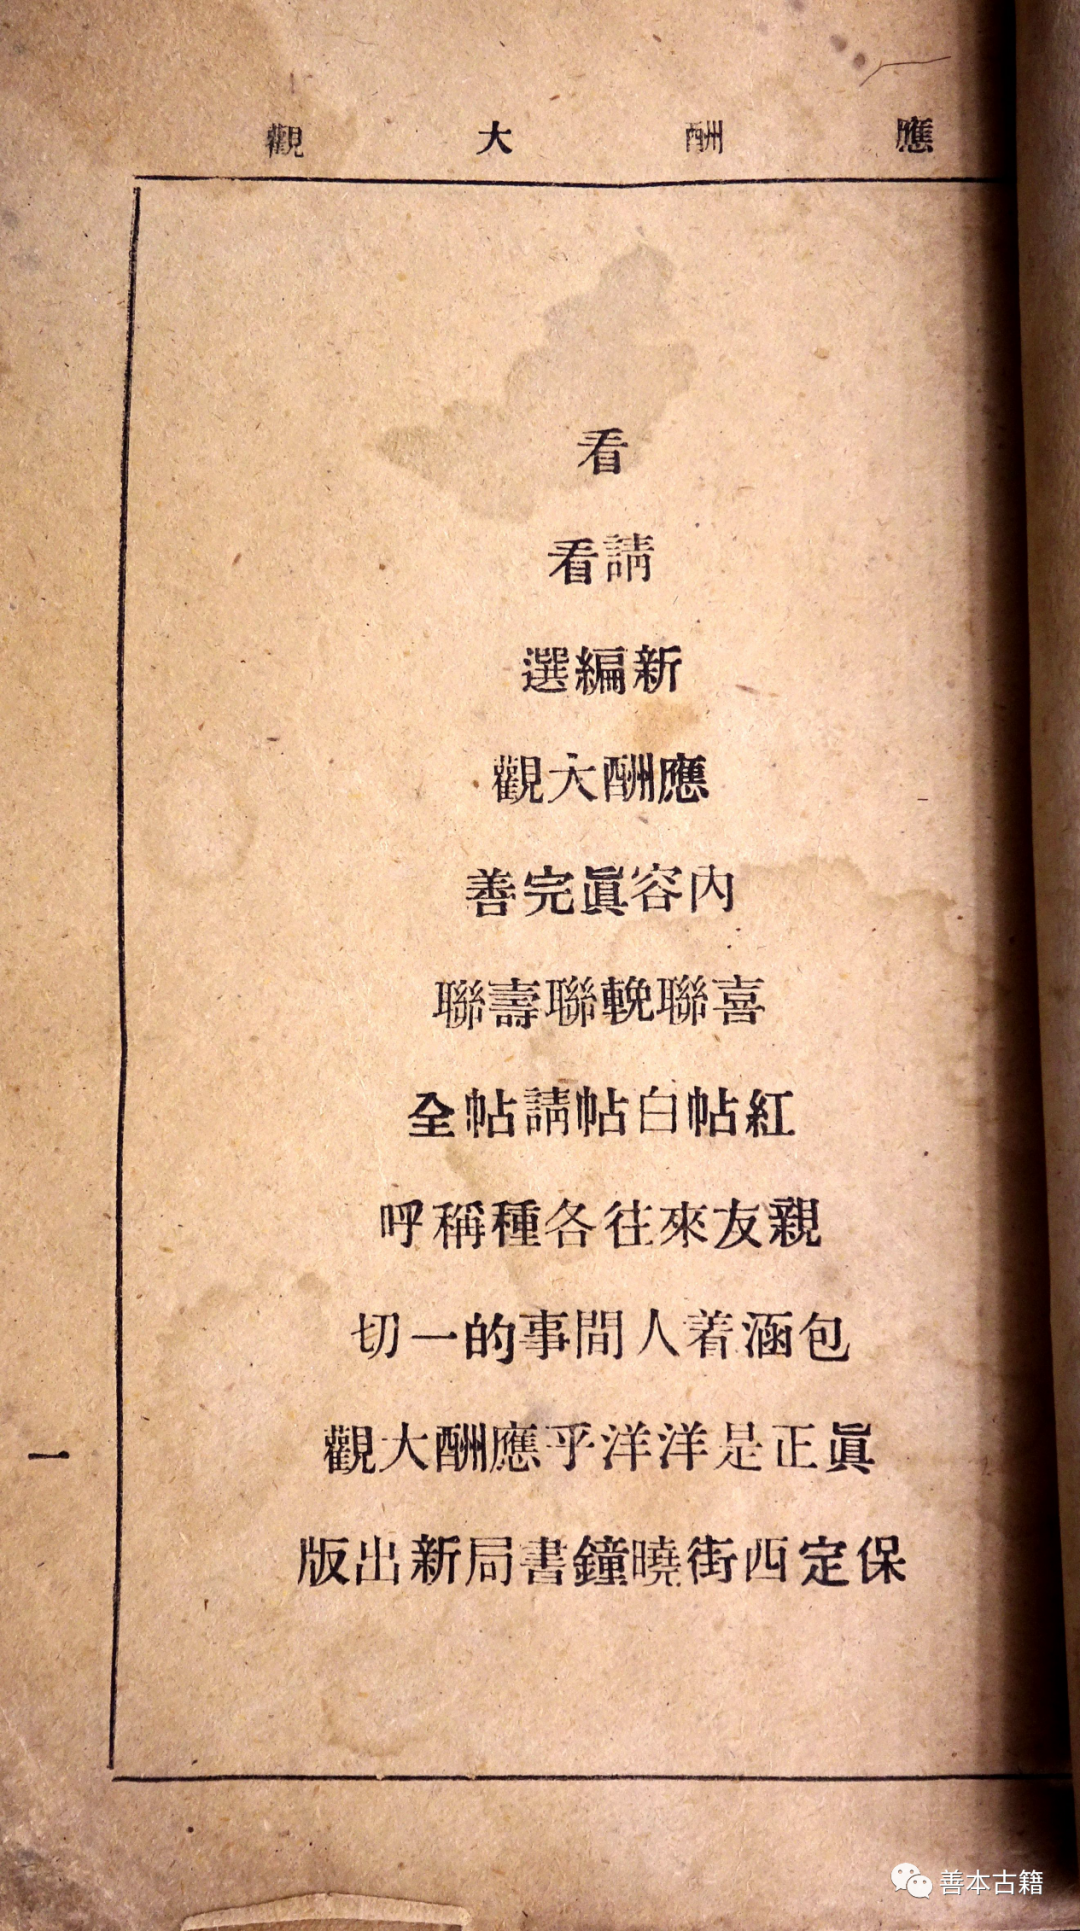 應酬大觀
看
請看
新編選
應酬大觀
內容眞完善
喜聯輓聯壽聯
紅帖白帖請帖全
親友來往各種稱呼
包涵着人間事的一切
眞正是洋洋乎應酬大觀
保定西街曉鐘書局新出版
一
善本古籍